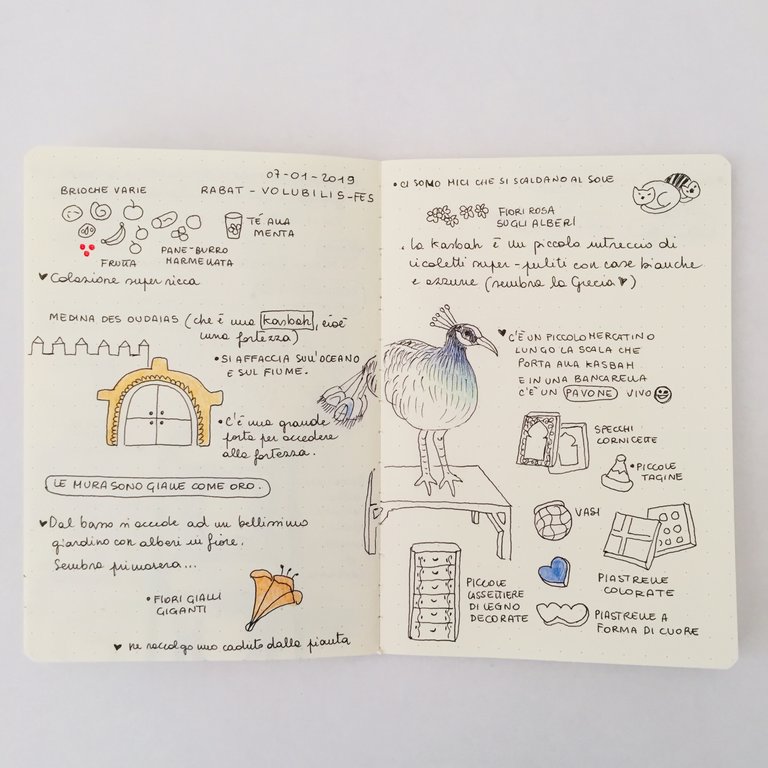 07-01-2019
RABAT - VOLUBILIS - FES
BRIOCHE VARIE
TÉ ALLA
MENTA
FRUTTA
PANE-BURRO
MARMELLATA
Colazione super ricca
MEDINA DES OUDAIAS (che è una kasbah, cioè
una fortezza)
• SI AFFACCIA SULL'OCEANO
E SUL FIUME.
• C'è una grande
porta per accedere
alla fortezza.
LE MURA SONO GIALLE COME ORO.
Dal basso si accede ad un bellissimo
giardino con alberi in fiore.
Sembra primavera...
• FIORI GIALLI
GIGANTI
ne raccolgo uno caduto dalla pianta
• CI SONO MICI CHE SI SCALDANO AL SOLE
FIORI ROSA
SUGLI ALBERI
• La Kasbah è un piccolo intreccio di
vicoletti super-puliti con case bianche
e azzurre (sembra la Grecia ♥)
♥ C'È UN PICCOLO MERCATINO
LUNGO LA SCALA CHE
PORTA ALLA KASBAH
E IN UNA BANCARELLA
C'È UN PAVONE VIVO
SPECCHI
CORNICETTE
• PICCOLE
TAGINE
VASI
PIASTRELLE
COLORATE
PICCOLE
CASSETTIERE
DI LEGNO
DECORATE
PIASTRELLE A
FORMA DI CUORE